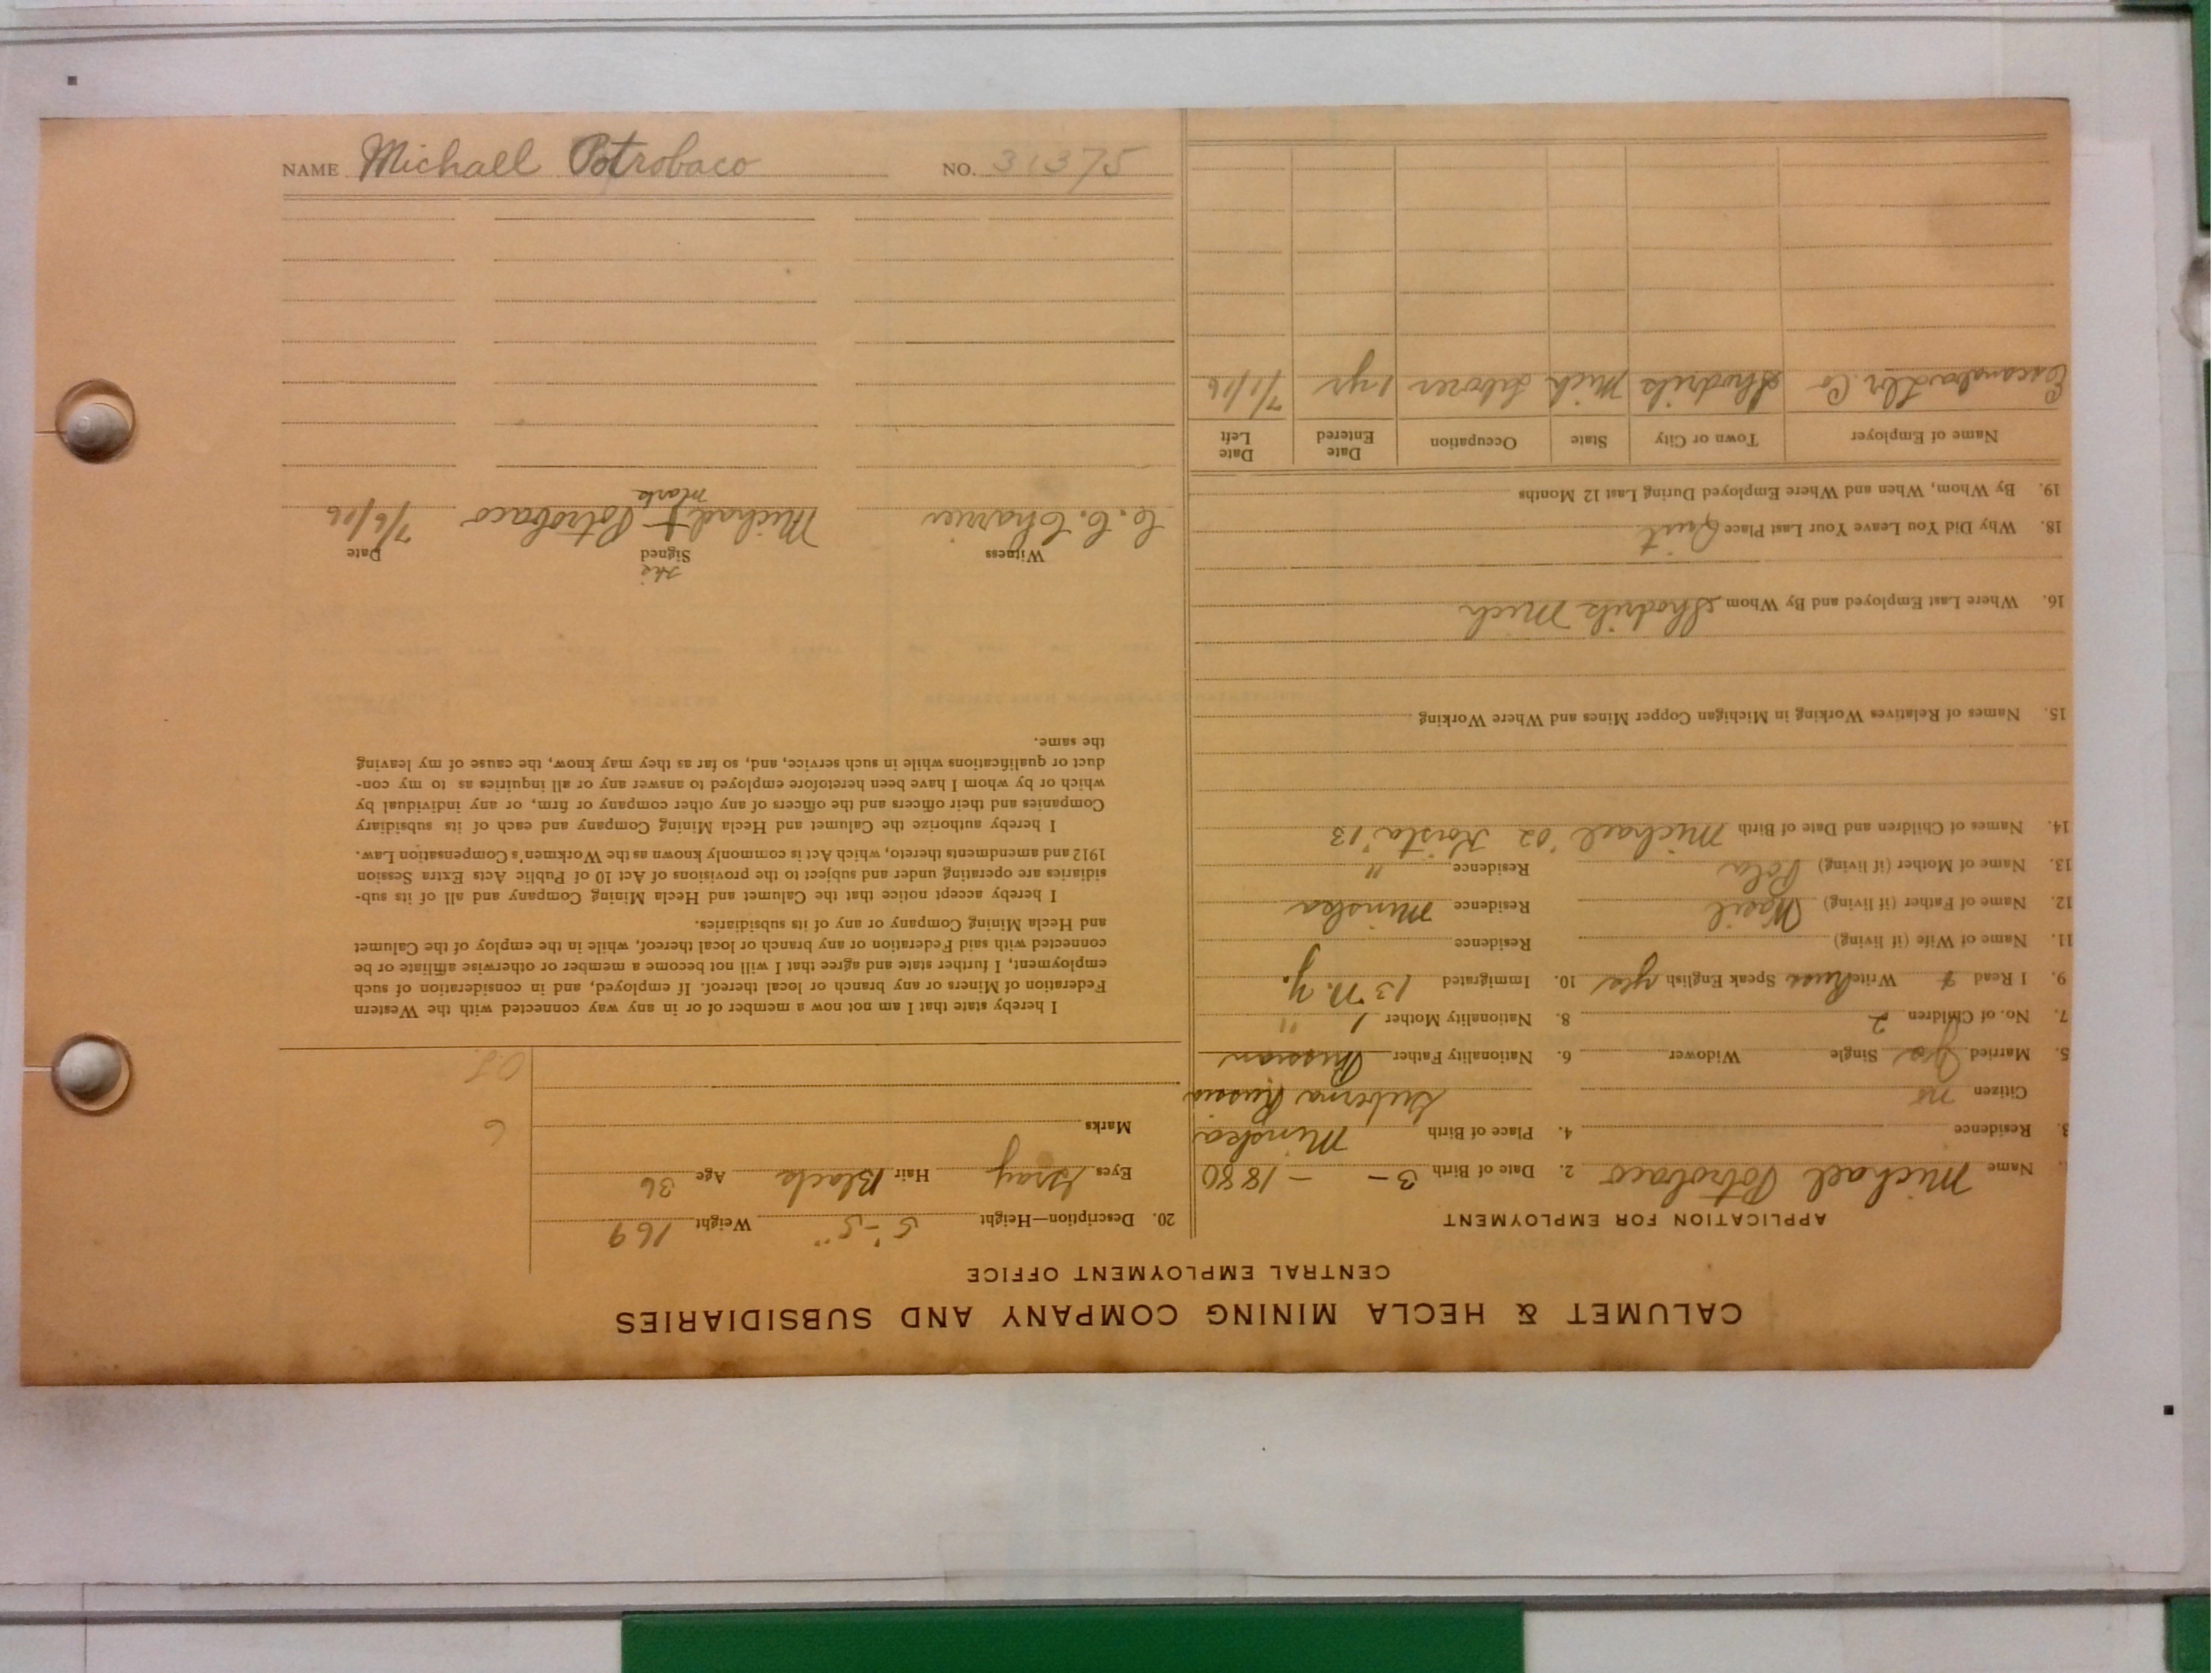 NAME Michael Potrobaco NO. 31375
CALUMET & HECLA MINING COMPANY AND SUBSIDIARIES
CENTRAL EMPLOYMENT OFFICE
APPLICATION FOR EMPLOYMENT
Name Michael Potrobaco 2. Date of Birth 3 - - 1880
3. Residence 4. Place of Birth Minska
Citizen no Guberna Russia
5. Married yes Single Widower 6. Nationality Father Russian
7. No. of Children 2 8. Nationality Mother "
9. I Read & Write Russ Speak English yes 10. Immigrated 13 N.Y.
11. Name of Wife (if living) Residence
12. Name of Father (if living) Residence Minska
13. Name of Mother (if living) Pola Residence "
14. Names of Children and Date of Birth Michael '02 '13
15. Names of Relatives Working in Michigan Copper Mines and Where Working
16. Where Last Employed and By Whom Mich
18. Why Did You Leave Your Last Place Quit
19. By Whom, When and Where Employed During Last 12 Months
Name of Employer Town or City State Occupation Date Entered Date Left
Escanaba Lbr. Co Mich Laborer 1 yr 7/1/16
20. Description—Height 5'-5" Weight 169
Eyes Gray Hair Black Age 36
Marks
6
I hereby state that I am not now a member of or in any way connected with the Western
Federation of Miners or any branch or local thereof. If employed, and in consideration of such
employment, I further state and agree that I will not become a member or otherwise affiliate or be
connected with said Federation or any branch or local thereof, while in the employ of the Calumet
and Hecla Mining Company or any of its subsidiaries.
I hereby accept notice that the Calumet and Hecla Mining Company and all of its sub-
sidiaries are operating under and subject to the provisions of Act 10 of Public Acts Extra Session
1912 and amendments thereto, which Act is commonly known as the Workmen's Compensation Law.
I hereby authorize the Calumet and Hecla Mining Company and each of its subsidiary
Companies and their officers and the officers of any other company or firm, or any individual by
which or by whom I have been heretofore employed to answer any or all inquiries as to my con-
duct or qualifications while in such service, and, so far as they may know, the cause of my leaving
the same.
his
Witness Signed Date
C. C. Charrier Michael + Potrobaco 7/6/16
mark